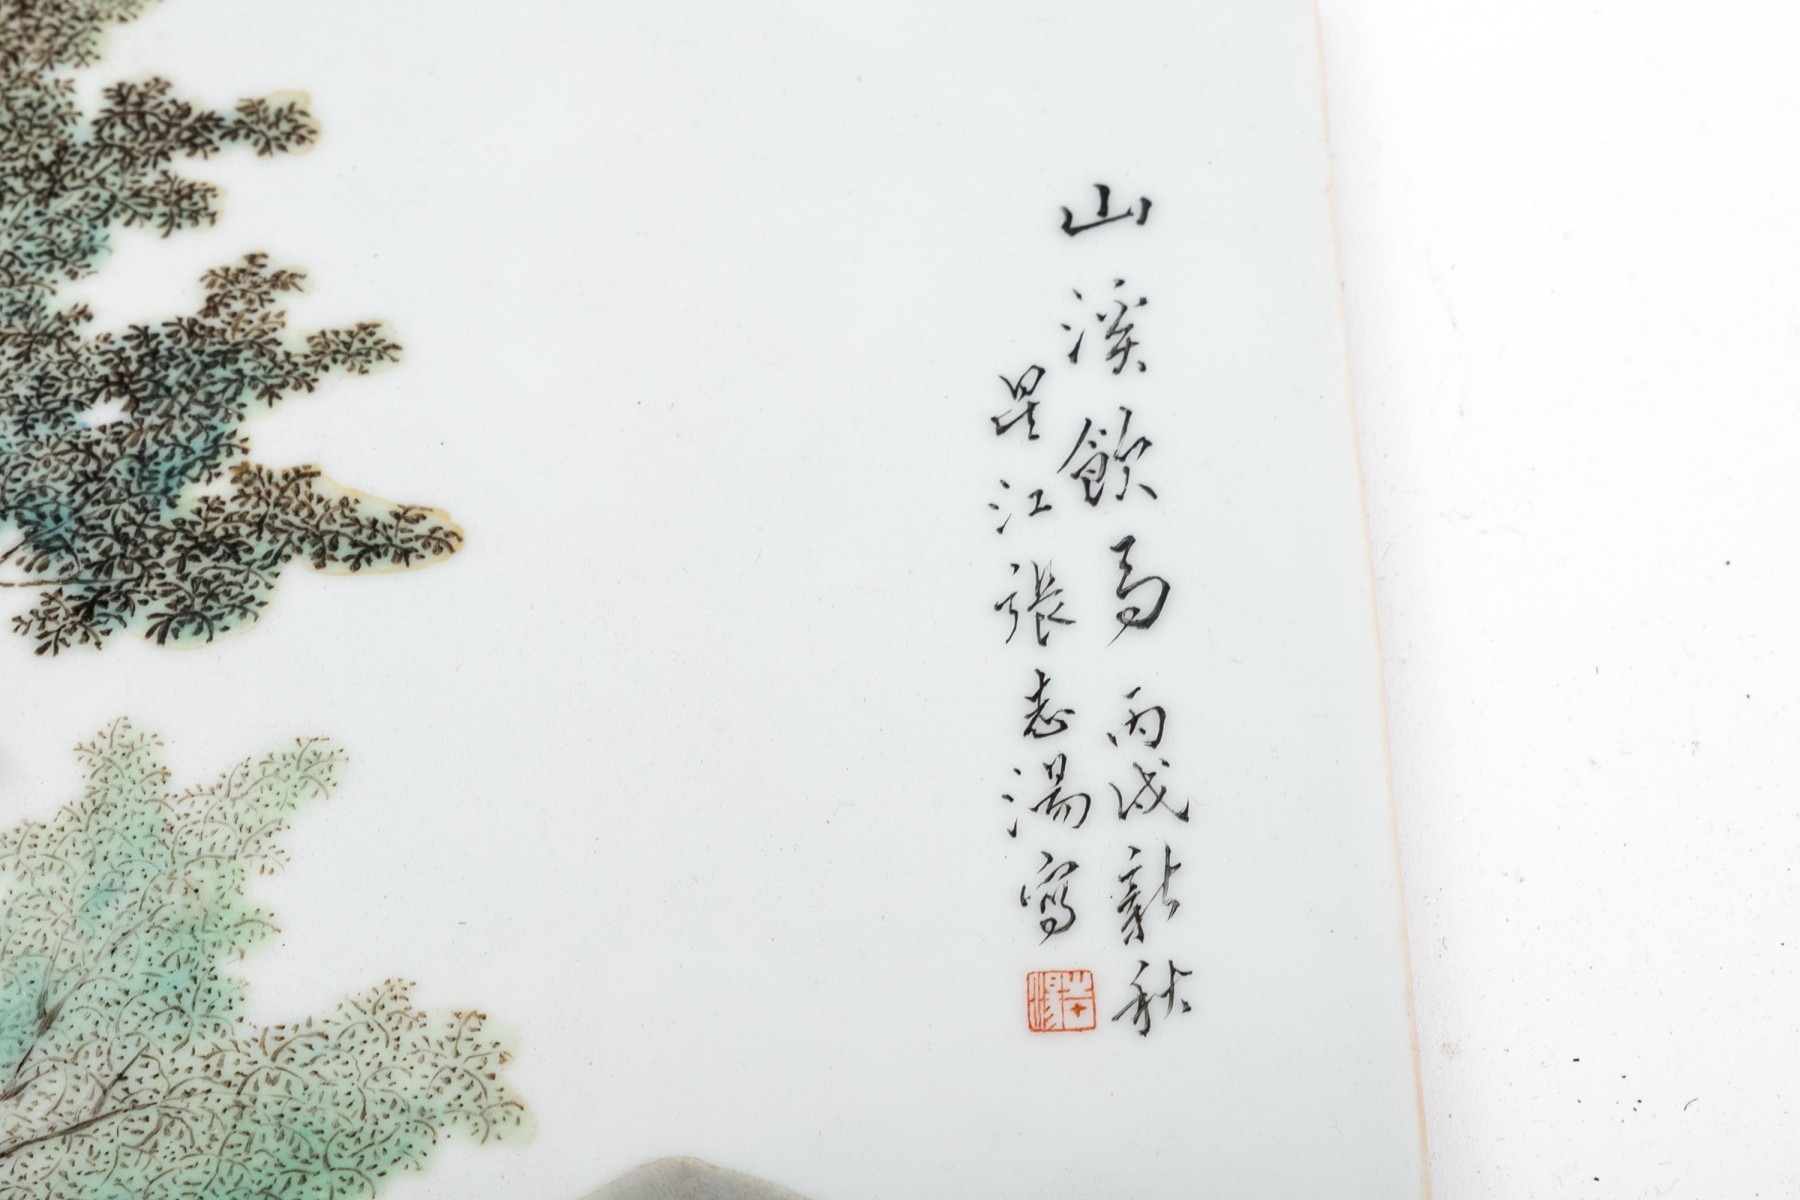 山溪飲馬 丙戌新秋
星江張志湯寫
志湯